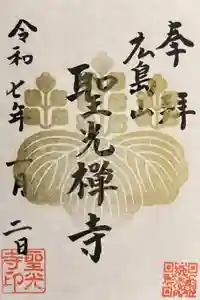 奉拝
広島山
聖光禅寺
令和七年一月二日
聖光寺印